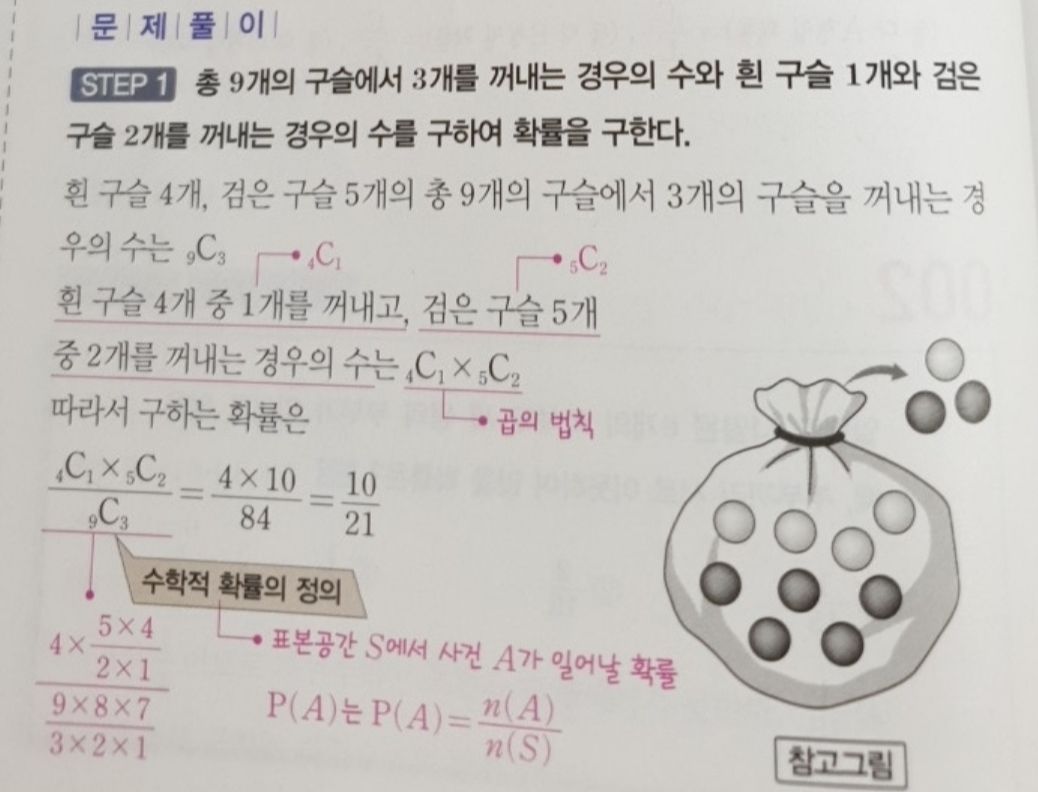 | 문 | 제 | 풀 | 이 |
STEP 1 총 9개의 구슬에서 3개를 꺼내는 경우의 수와 흰 구슬 1개와 검은
구슬 2개를 꺼내는 경우의 수를 구하여 확률을 구한다.
흰 구슬 4개, 검은 구슬 5개의 총 9개의 구슬에서 3개의 구슬을 꺼내는 경
우의 수는 ₉C₃
₄C₁ ₅C₂
흰 구슬 4개 중 1개를 꺼내고, 검은 구슬 5개
중 2개를 꺼내는 경우의 수는 ₄C₁×₅C₂
곱의 법칙
따라서 구하는 확률은
₄C₁×₅C₂/₉C₃ = 4×10/84 = 10/21
수학적 확률의 정의
4× 5×4/2×1
9×8×7/3×2×1
표본공간 S에서 사건 A가 일어날 확률
P(A)는 P(A)= n(A)/n(S)
참고그림